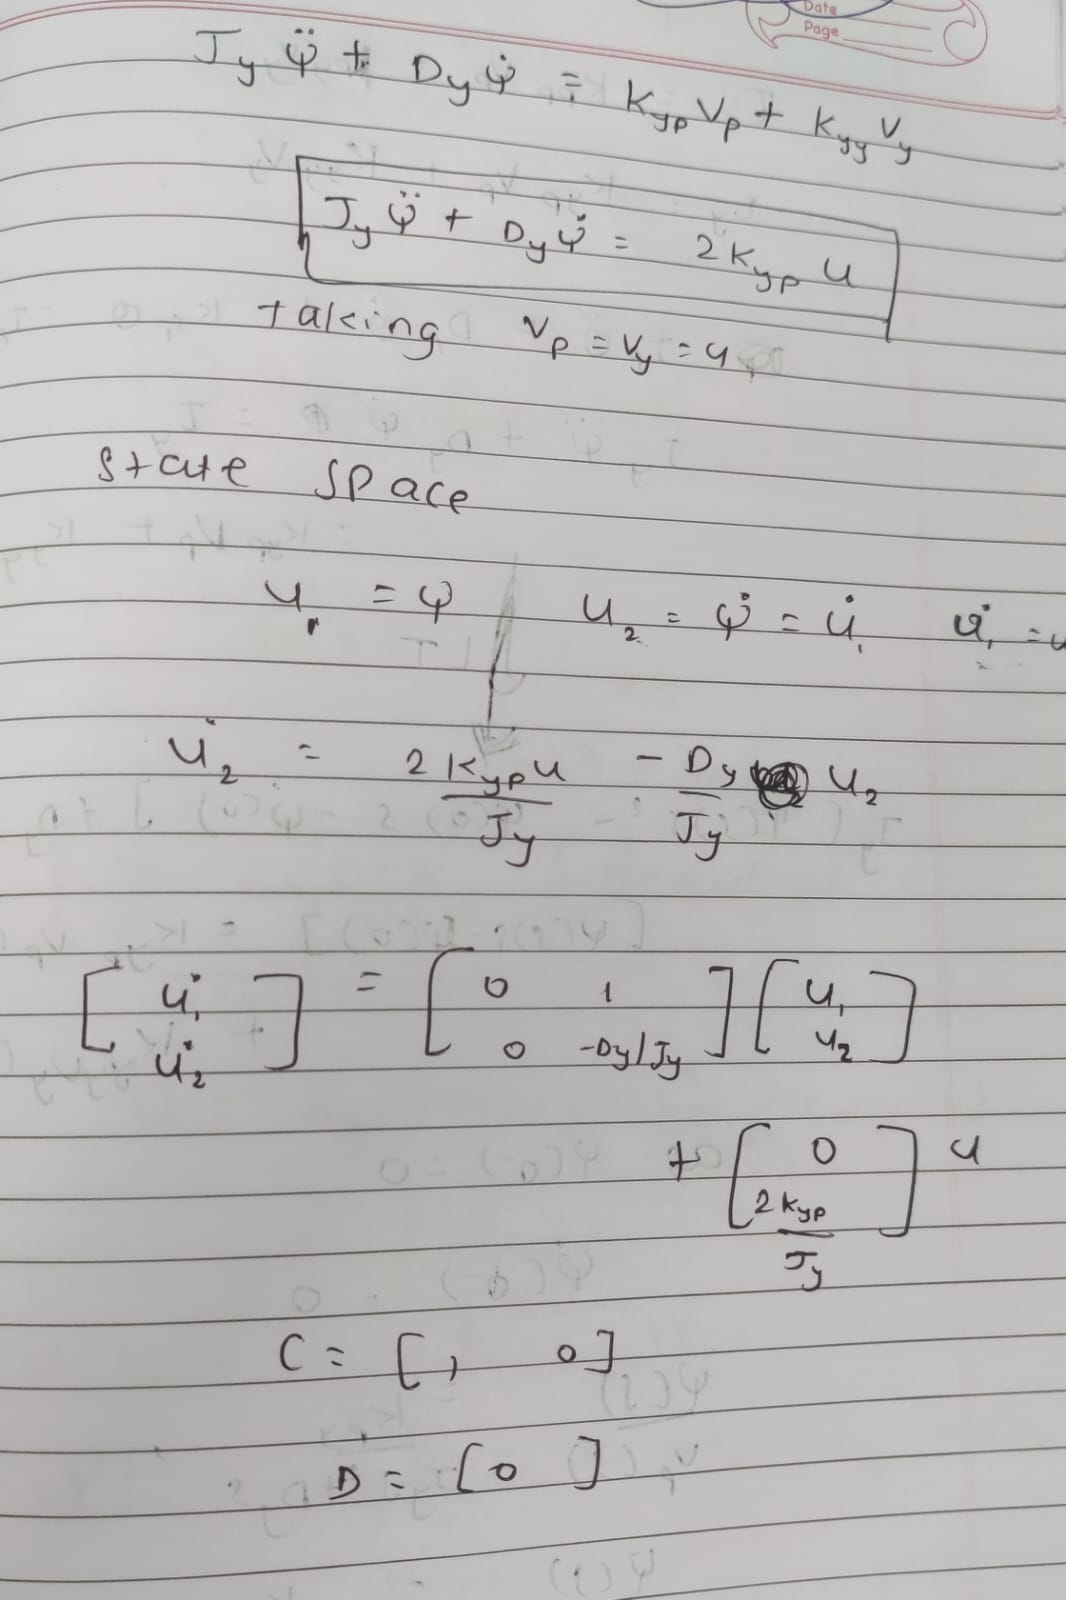 Date
Page
J_y ψ̈ + D_y ψ̇ = K_yp V_p + K_yy V_y
J_y ψ̈ + D_y ψ̇ = 2 K_yp u
taking V_p = V_y = u
State Space
u_1 = ψ u_2 = ψ̇ = u̇_1 u̇_1 = u
u̇_2 = 2 K_yp u / J_y - D_y / J_y u_2
[ u̇_1 u̇_2 ] = [ 0 1 0 -Dy/Jy ] [ u_1 u_2 ]
+ [ 0 2 K_yp / J_y ] u
C = [ 1 0 ]
D = [ 0 ]